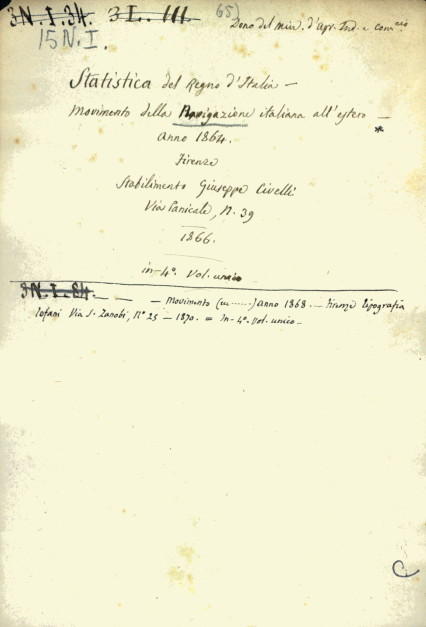 3N.I.34. 3L. III 65)
Dono del Min. d'Agr. Ind. e Com.cio
15 N.I.
Statistica del Regno d'Italia —
Movimento della Navigazione italiana all'estero —
*
Anno 1864.
Firenze
Stabilimento Giuseppe Civelli
Via Panicale, N. 39
1866.
in-4°. Vol. unico
3N.I.84. — — Movimento (......) Anno 1868. — Firenze tipografia
Tofani Via S. Zanobi, N° 25 — 1870. = in-4°. Vol. unico —